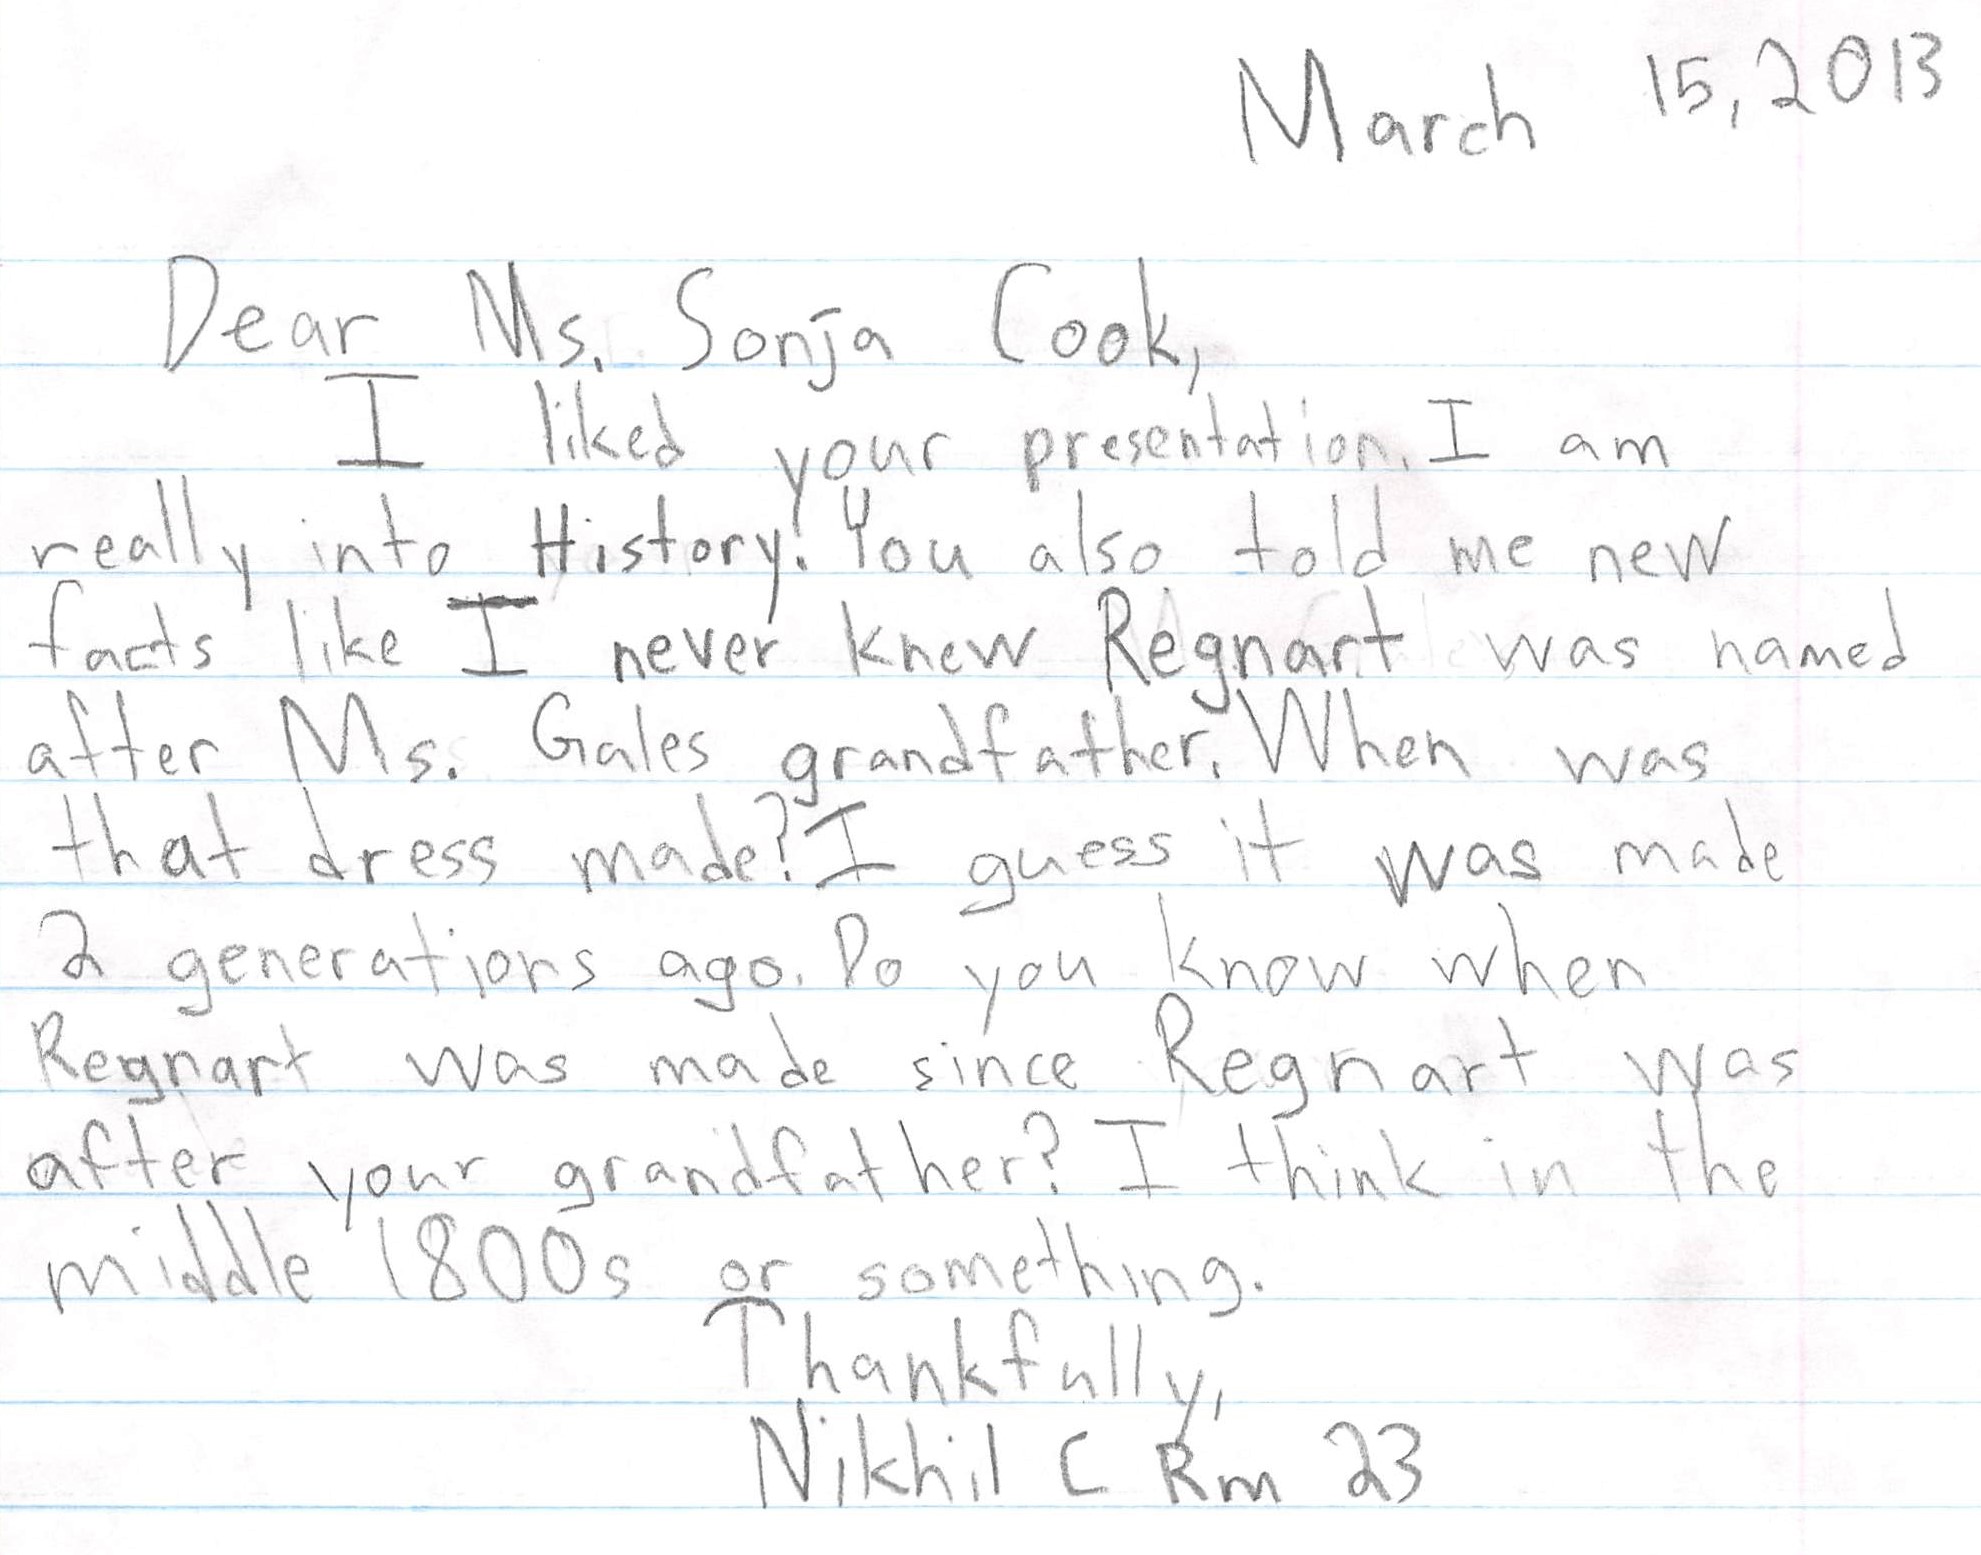 March 15, 2013
Dear Ms. Sonja Cook,
I liked your presentation. I am
really into History! You also told me new
facts like I never knew Regnart was named
after Ms. Gales grandfather. When was
that dress made? I guess it was made
2 generations ago. Do you know when
Regnart was made since Regnart was
after your grandfather? I think in the
middle 1800s or something.
Thankfully,
Nikhil C Rm 23